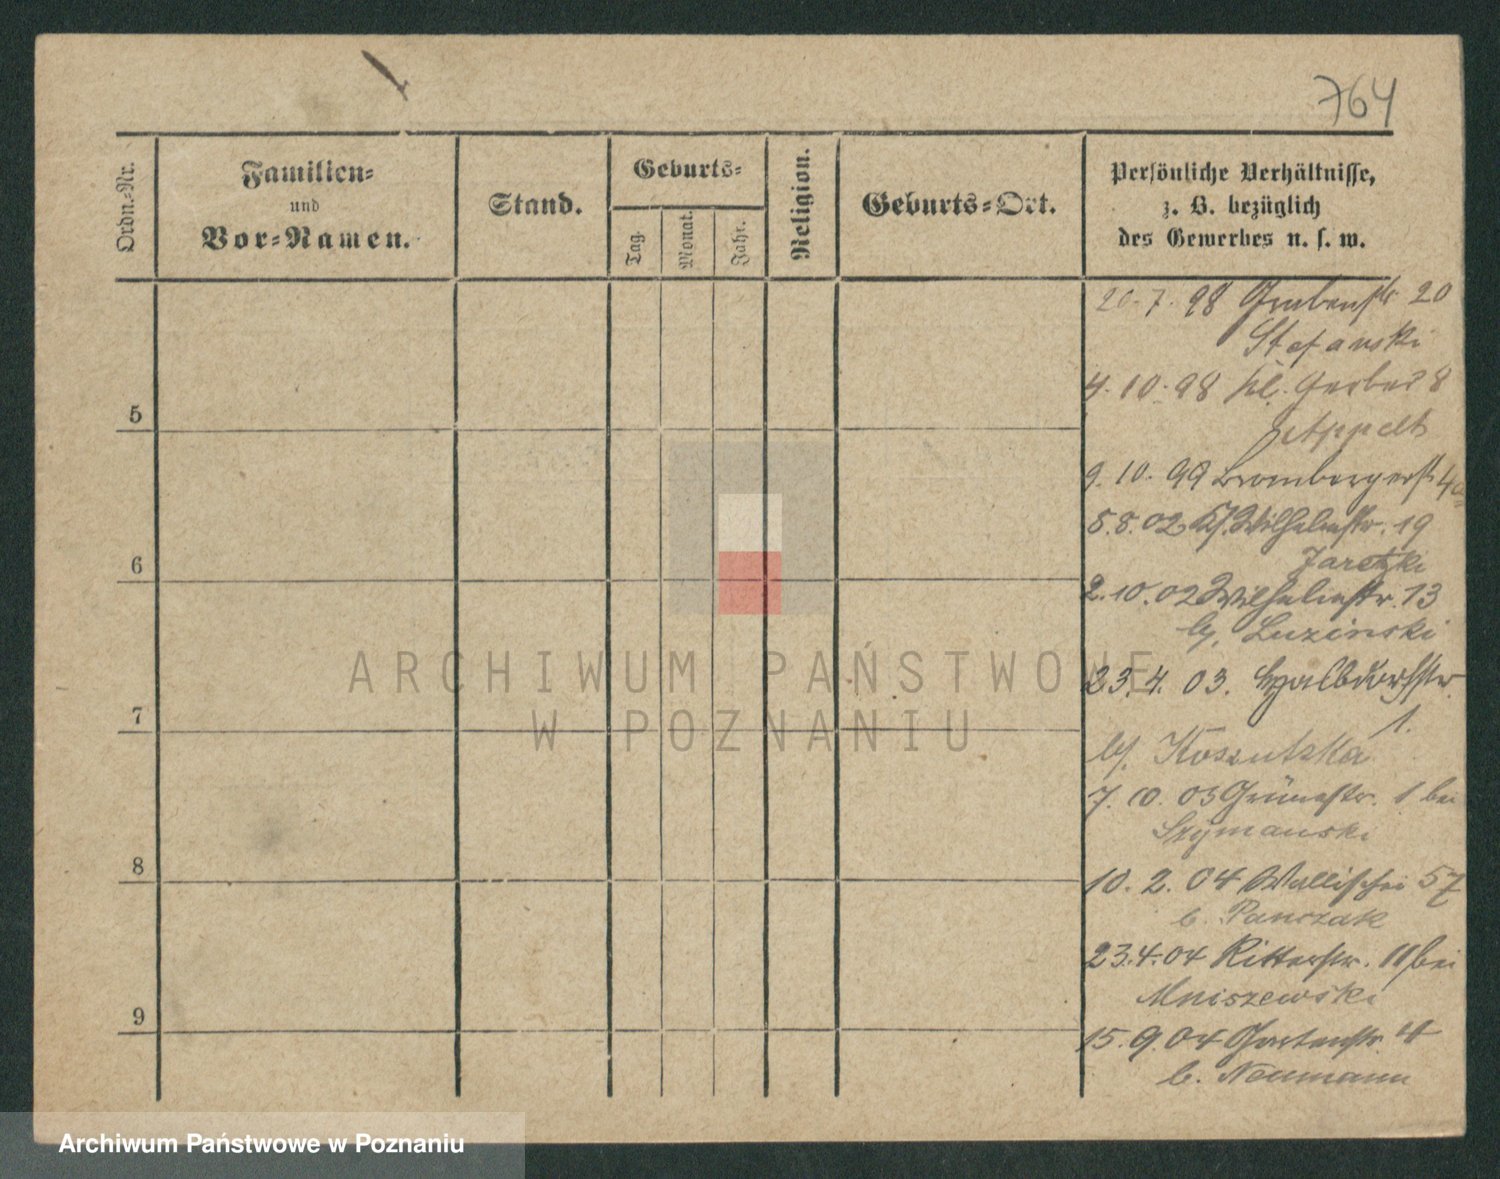 764
Ordn.-Nr.
Familien-
und
Vor-Namen.
Stand.
Geburts-
Tag.
Monat.
Jahr.
Religion.
Geburts-Ort.
Persönliche Verhältnisse,
z. B. bezüglich
des Gewerbes u. s. w.
20.7.98 Grabenstr 20
Stefanski
4.10.98 kl. Gerber 8
Appelt
5
9.10.99 Brombergerstr 4a
5.8.02 Wilhelmstr. 19
Jaretzki
6
2.10.02 Wilhelmstr. 13
bj. Luzinski
23.4.03. Halbdorfstr.
1.
7
bj. Koszutzka
7.10.03 Grünestr. 1 bei
Szymanski
8
10.2.04 Wallischei 57
b. Panczak
23.4.04 Ritterstr. 11 bei
Mniszewski
9
15.9.04 Gartenstr. 4
b. Neumann
ARCHIWUM PAŃSTWOWE
W POZNANIU
Archiwum Państwowe w Poznaniu